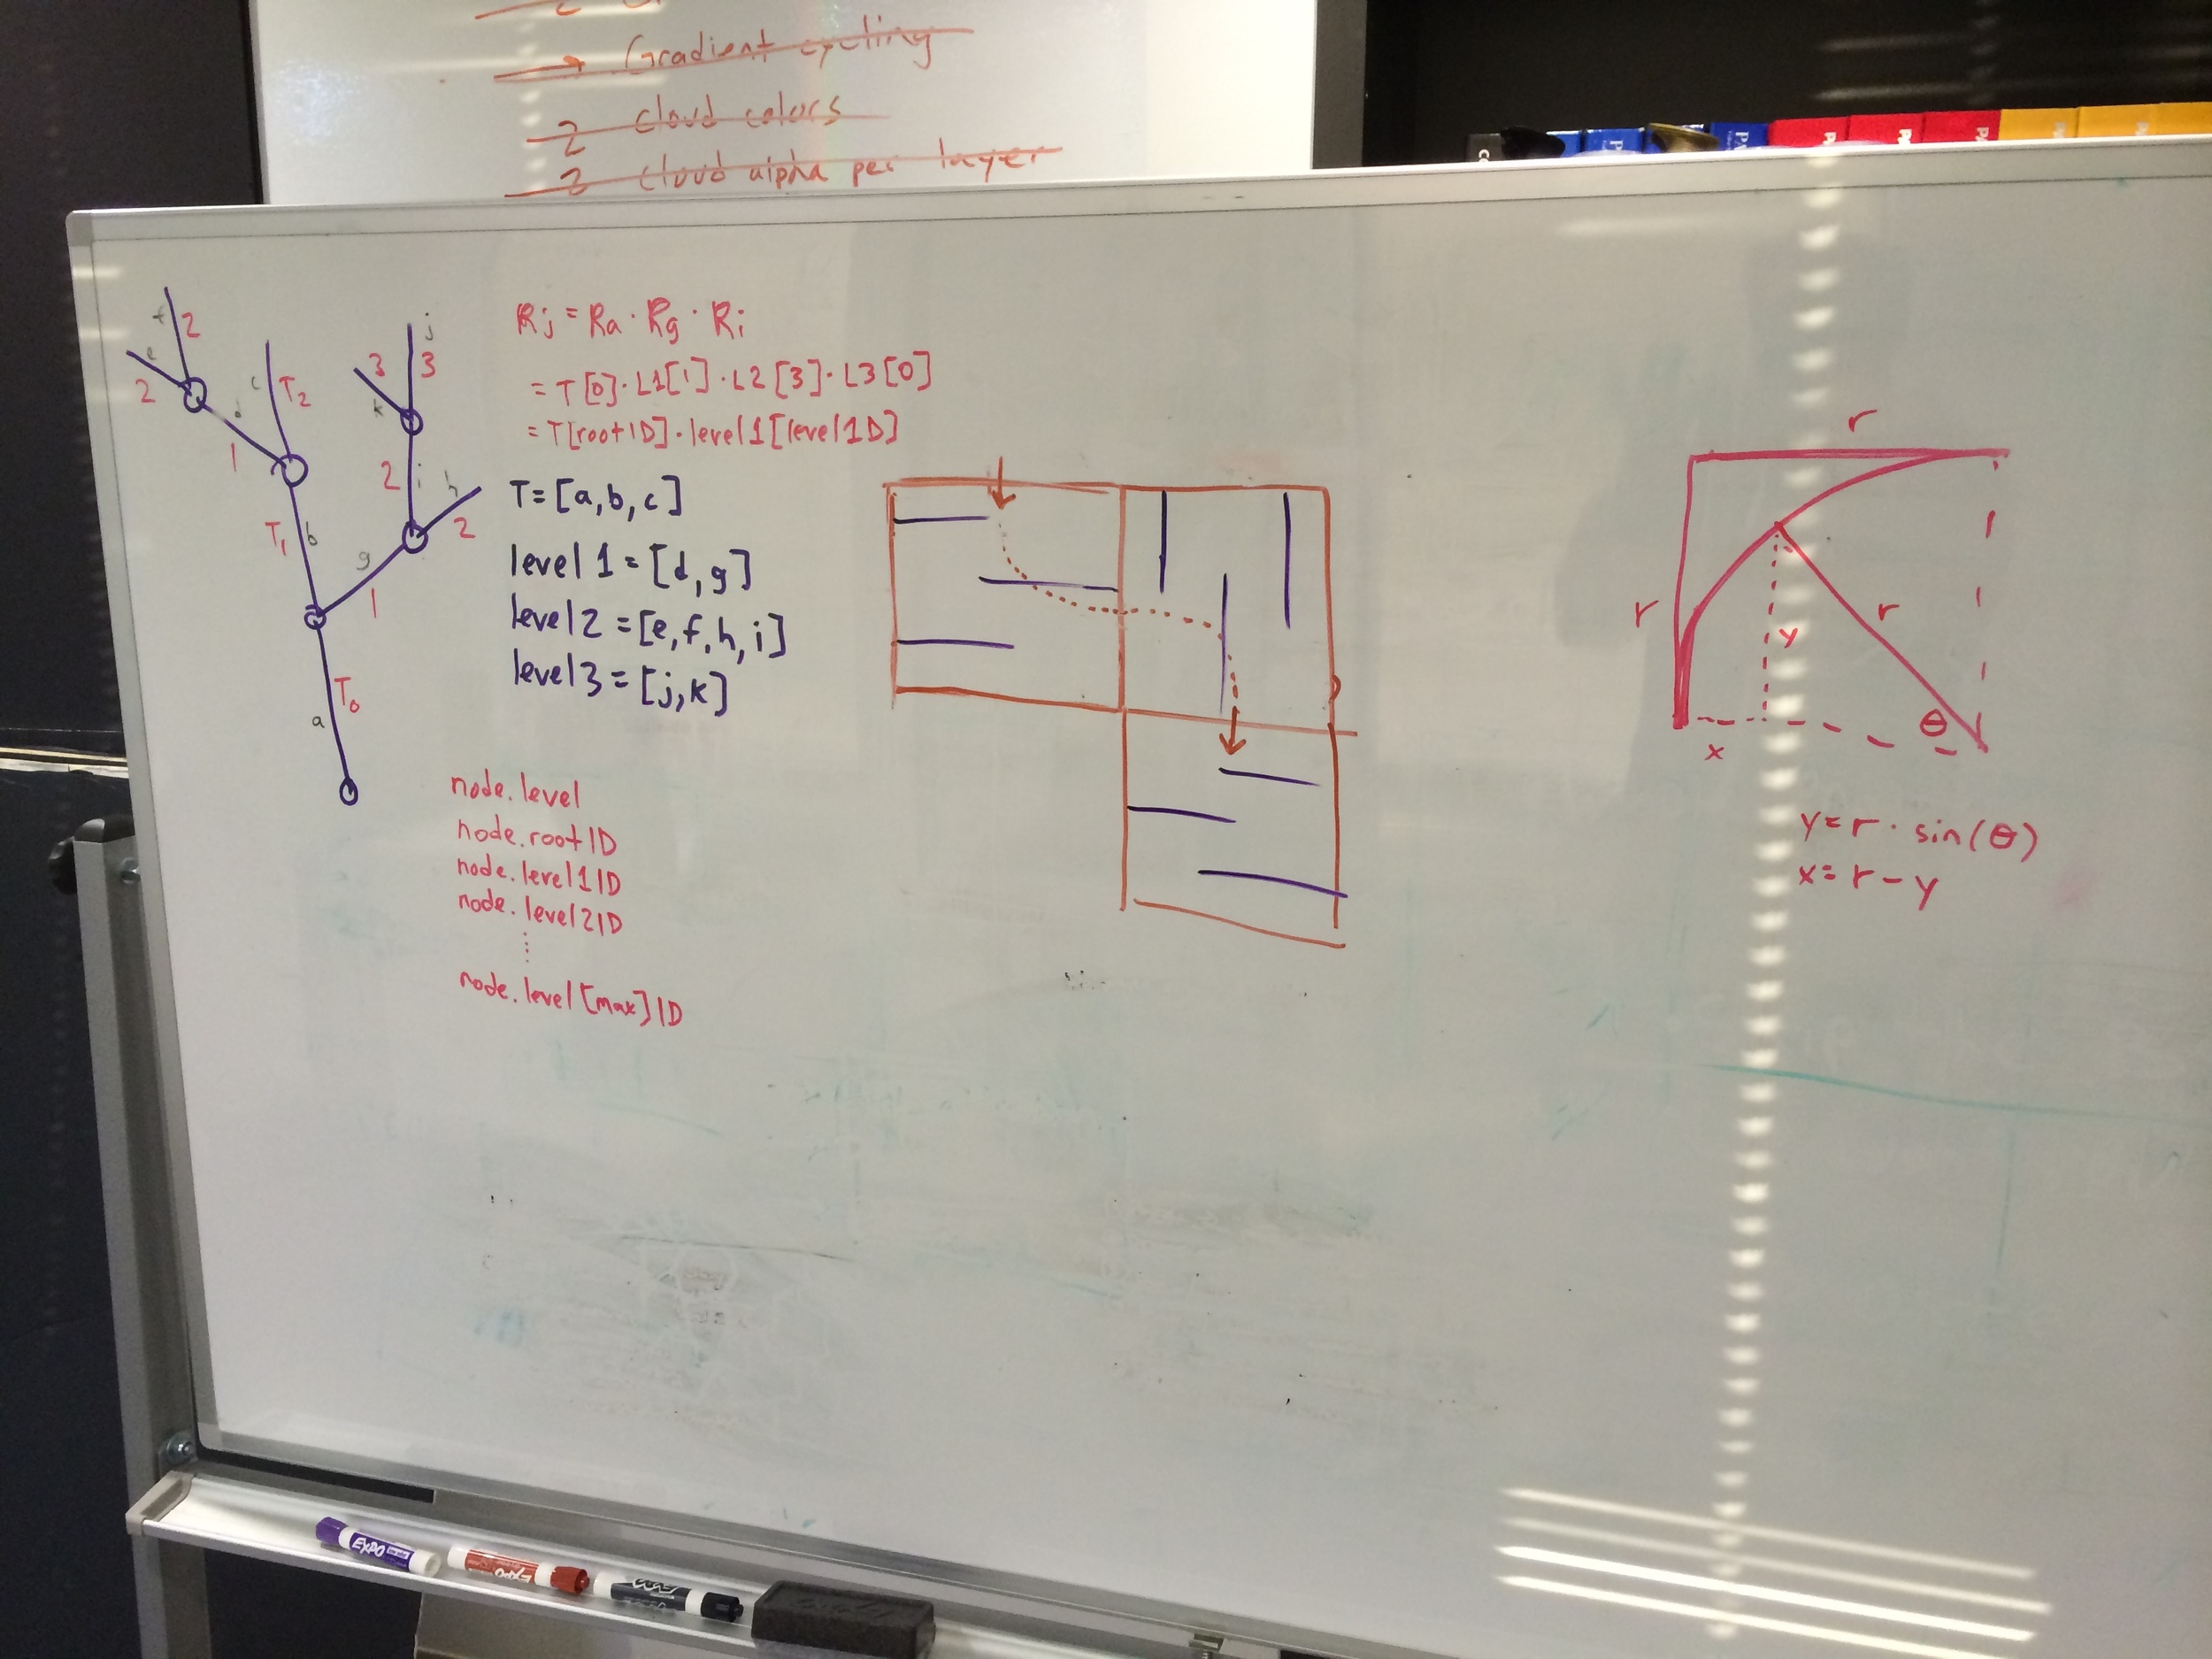 → Gradient cycling
2 cloud colors
3 cloud alpha per layer
Rj = Ra · Rg · Ri
= T[0] · L1[1] · L2[3] · L3[0]
= T[rootID] · level1[level1D]
T = [a, b, c]
level 1 = [d, g]
level 2 = [e, f, h, i]
level 3 = [j, k]
f 2
e
2
d
1
c T2
j
3 3
k
2 i h
2
T1 b
g
1
T0
a
node.level
node.rootID
node.level1ID
node.level2ID
⋮
node.level[max]ID
r
r r
y
θ
x
y = r · sin(θ)
x = r - y
EXPO
EXPO